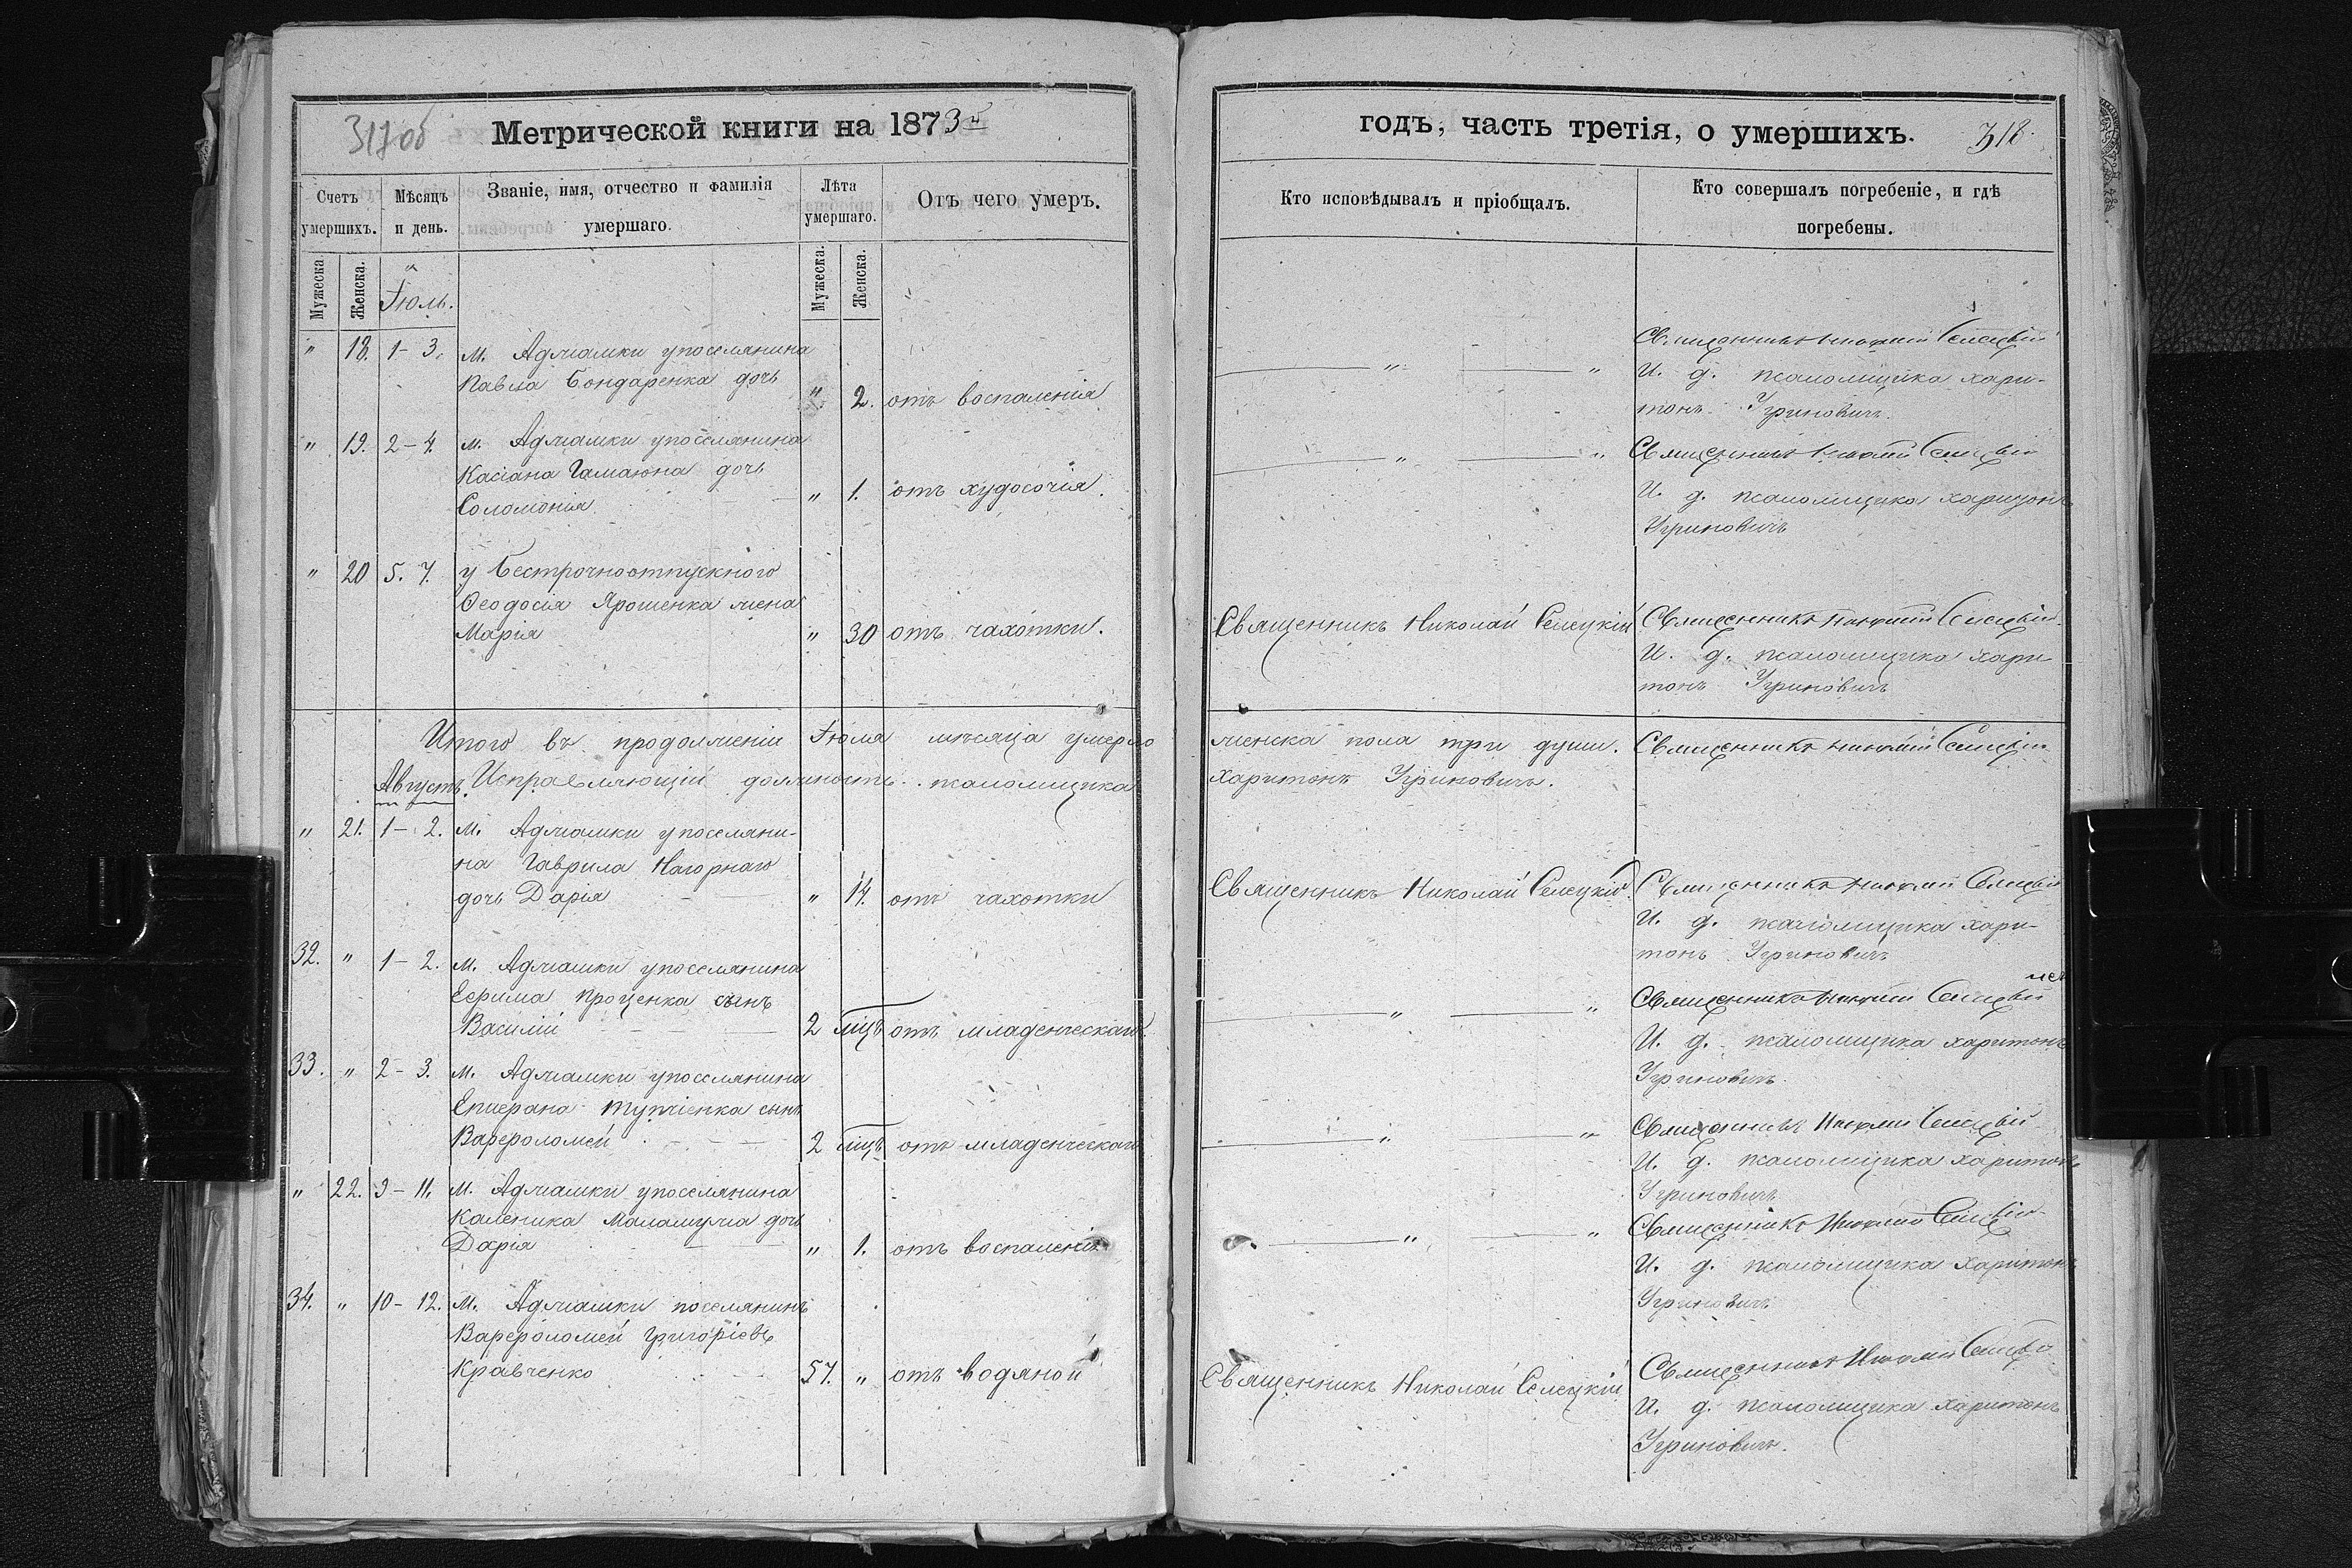 317об
Метрической книги на 1873й
годъ, часть третія, о умершихъ.
318.
Счетъ умершихъ.
Мѣсяцъ и день.
Званіе, имя, отчество и фамилія умершаго.
Лѣта умершаго.
Отъ чего умеръ.
Кто исповѣдывалъ и пріобщалъ.
Кто совершалъ погребеніе, и гдѣ погребены.
Мужеска
Женска.
Іюль.
Мужеска.
Женска.
" 18. 1-3. м. Аджамки упоселянина
Павла Бондаренка дочь
" 2. отъ воспаленія
" "
Священникъ Николай Селецкій
И. д. псаломщика Хари-
тонъ Угриновичъ.
" 19. 2-4. м. Аджамки упоселянина
Касіана Гамаюна дочь
Соломонія " 1. отъ худосочія.
" "
Священникъ Николай Селецкій
И. д. псаломщика Харитонъ
Угриновичъ
" 20 5. 7. у безсрочноотпускного
Феодосія Ярошенка жена
Марія " 30 отъ чахотки.
Священникъ Николай Селецкій
Священникъ Николай Селецкій
И. д. псаломщика Хари
тонъ Угриновичъ
Итого въ продолженіи Іюля мѣсяца умерло женска пола три души. Священникъ Николай Селецкій
Августъ. Исправляющій должность псаломщика Харитонъ Угриновичъ.
" 21. 1-2. м. Аджамки упоселяни-
на Гаврила Нагорнаго
дочь Дарія " 14. отъ чахотки
Священникъ Николай Селецкій
Священникъ Николай Селецкій
И. д. псаломщика Хари-
тонъ Угриновичъ
32. " 1-2. м. Аджамки упоселянина
Ефрима Проценка сынъ
Василій 2 мцъ отъ младенческаго.
" "
Священникъ Николай Селецкій
И. д. псаломщика Харитонъ
Угриновичъ.
33. " 2-3. м. Аджамки упоселянина
сынъ
Варфоломей 2 мцъ отъ младенческаго
" "
Священникъ Николай Селецкій
И. д. псаломщика Харитонъ
Угриновичъ
" 22. 9-11. м. Аджамки упоселянина
Каленика Маламужа дочь
Дарія " 1. отъ воспаленія
" "
Священникъ Николай Селецкій
И. д. псаломщика Харитонъ
Угриновичъ
34. " 10-12. м. Аджамки поселянинъ
Варфоломей Григоріевъ
Кравченко 57. " отъ водяной
Священникъ Николай Селецкій
Священникъ Николай Селецкій
И. д. псаломщика Харитонъ
Угриновичъ.